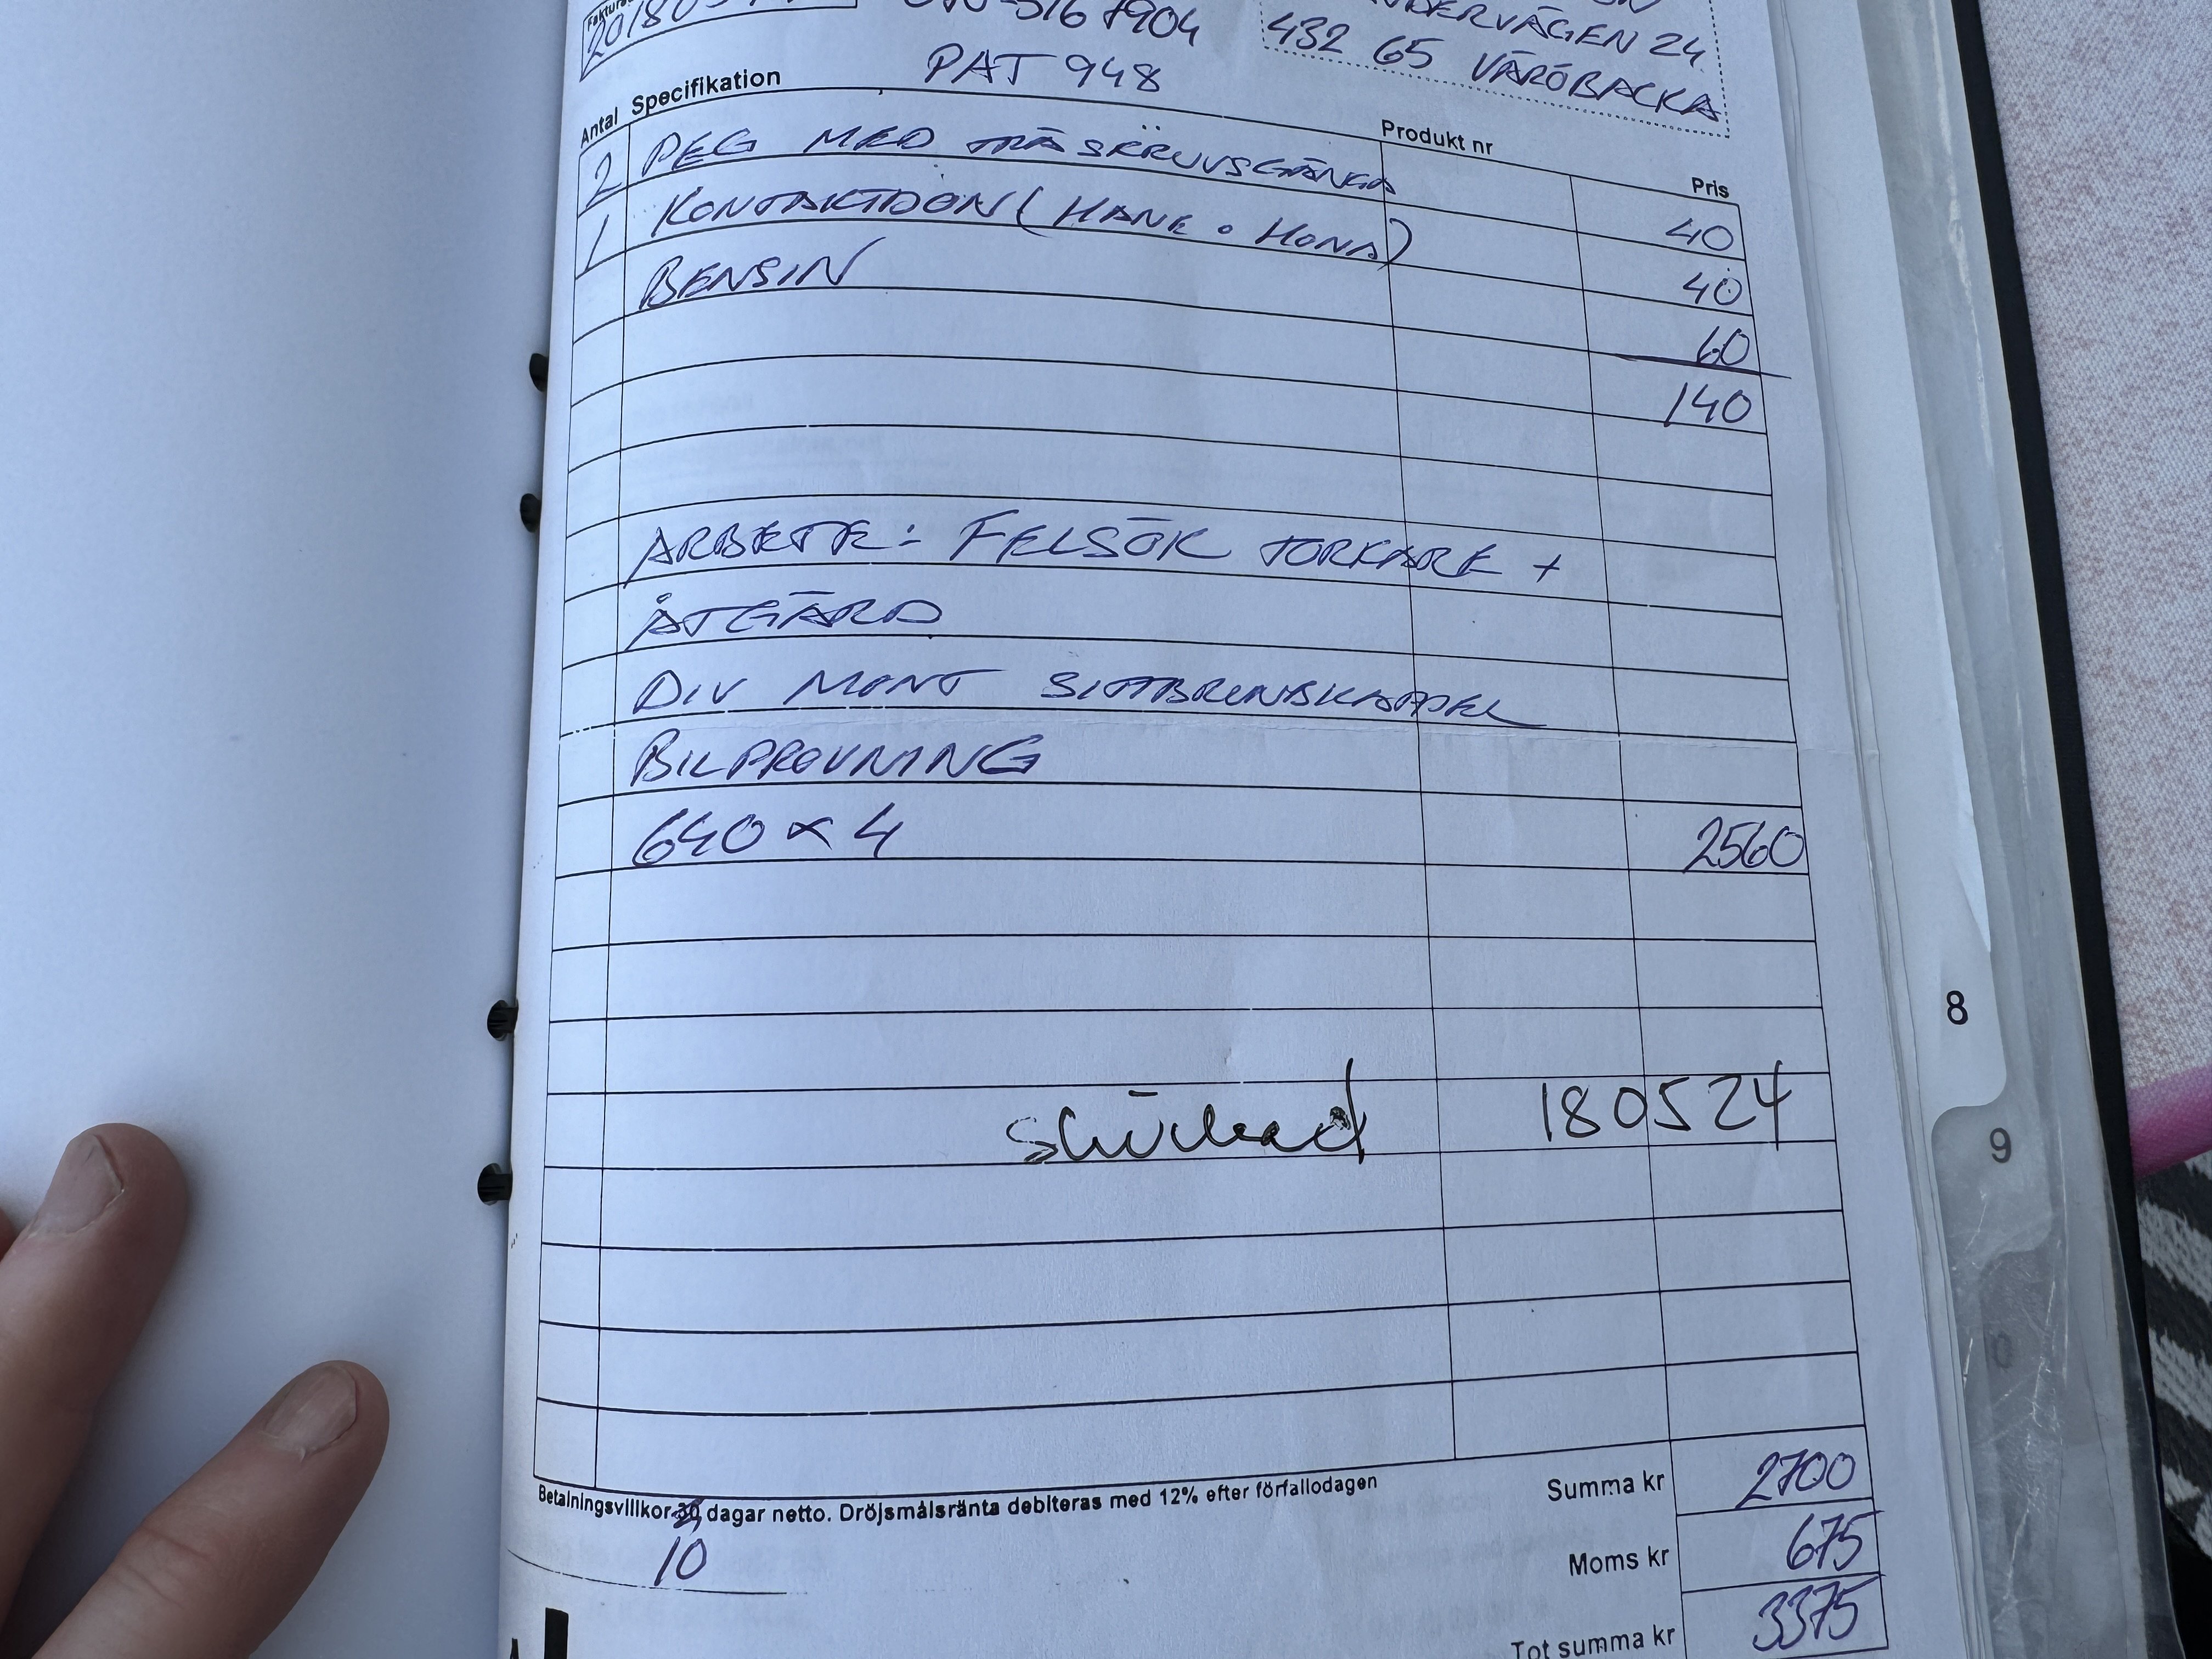 PAT 948
432 65 VÄRÖBACKA
Antal Specifikation Produkt nr Pris
2 PEG MED TRÄSKRUVSGÄNGA 40
1 KONTAKTDON (HANE o HONA) 40
BENSIN 60
140
ARBETE: FELSÖK TORKARE +
ÅTGÄRD
DIV MONT SITTBRUNSKAPELL
BILPROVNING
640 x 4 2560
180524
Betalningsvillkor 30 dagar netto. Dröjsmålsränta debiteras med 12% efter förfallodagen
10
Summa kr 2700
Moms kr 675
Tot summa kr 3375
8
9